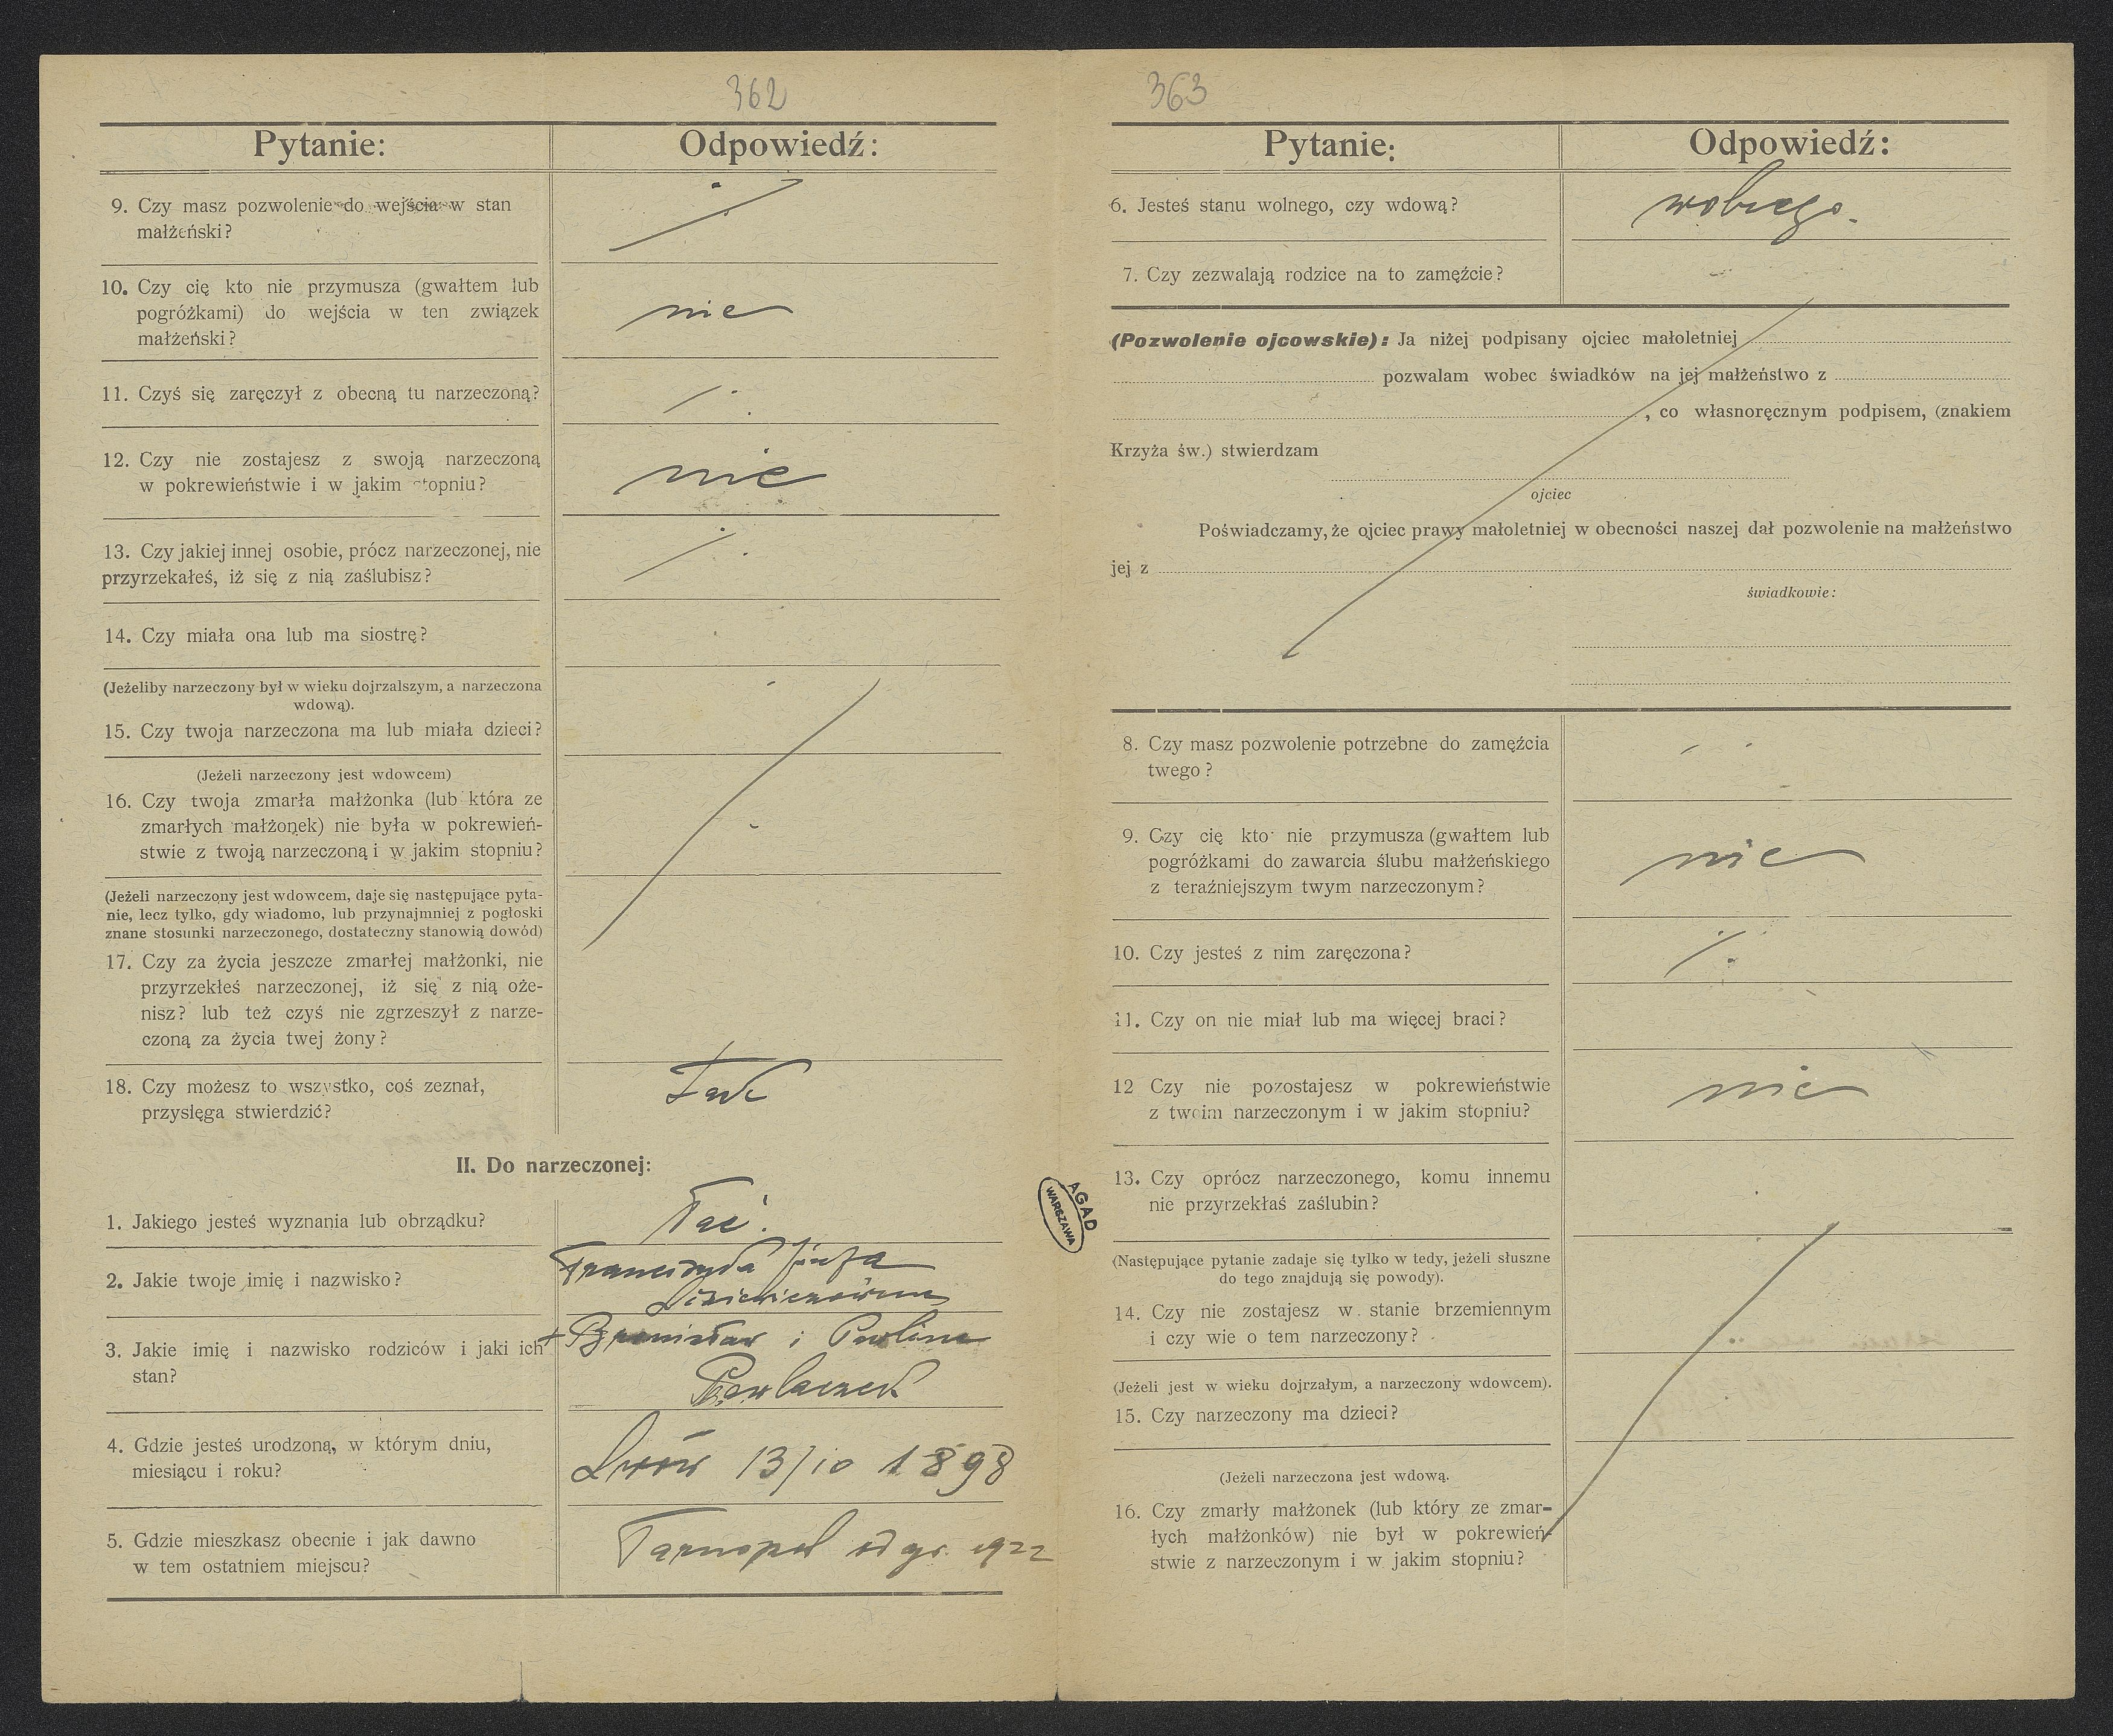 362
Pytanie:
Odpowiedź:
9. Czy masz pozwolenie do wejścia w stan
małżeński?
10. Czy cię kto nie przymusza (gwałtem lub
pogróżkami) do wejścia w ten związek
małżeński?
nie
11. Czyś się zaręczył z obecną tu narzeczoną?
12. Czy nie zostajesz z swoją narzeczoną
w pokrewieństwie i w jakim stopniu?
nie
13. Czy jakiej innej osobie, prócz narzeczonej, nie
przyrzekałeś, iż się z nią zaślubisz?
14. Czy miała ona lub ma siostrę?
(Jeżeliby narzeczony był w wieku dojrzalszym, a narzeczona
wdową).
15. Czy twoja narzeczona ma lub miała dzieci?
(Jeżeli narzeczony jest wdowcem)
16. Czy twoja zmarła małżonka (lub która ze
zmarłych małżonek) nie była w pokrewień-
stwie z twoją narzeczoną i w jakim stopniu?
(Jeżeli narzeczony jest wdowcem, daje się następujące pyta-
nie, lecz tylko, gdy wiadomo, lub przynajmniej z pogłoski
znane stosunki narzeczonego, dostateczny stanowią dowód)
17. Czy za życia jeszcze zmarłej małżonki, nie
przyrzekłeś narzeczonej, iż się z nią oże-
nisz? lub też czyś nie zgrzeszył z narze-
czoną za życia twej żony?
18. Czy możesz to wszystko, coś zeznał,
przysięgą stwierdzić?
Tak
II. Do narzeczonej:
1. Jakiego jesteś wyznania lub obrządku?
łać.
2. Jakie twoje imię i nazwisko?
Franciszka Józefa
3. Jakie imię i nazwisko rodziców i jaki ich
stan?
+ Bronisław i Paulina
Pawlaczek
4. Gdzie jesteś urodzoną, w którym dniu,
miesiącu i roku?
Lwów 13/10 1898
5. Gdzie mieszkasz obecnie i jak dawno
w tem ostatniem miejscu?
Tarnopol od gr. 1922
AGAD
WARSZAWA
363
Pytanie:
Odpowiedź:
6. Jesteś stanu wolnego, czy wdową?
wolnego.
7. Czy zezwalają rodzice na to zamęźcie?
(Pozwolenie ojcowskie): Ja niżej podpisany ojciec małoletniej
pozwalam wobec świadków na jej małżeństwo z
, co własnoręcznym podpisem, (znakiem
Krzyża św.) stwierdzam
ojciec
Poświadczamy, że ojciec prawy małoletniej w obecności naszej dał pozwolenie na małżeństwo
jej z
świadkowie:
8. Czy masz pozwolenie potrzebne do zamęźcia
twego?
9. Czy cię kto nie przymusza (gwałtem lub
pogróżkami do zawarcia ślubu małżeńskiego
z teraźniejszym twym narzeczonym?
nie
10. Czy jesteś z nim zaręczona?
11. Czy on nie miał lub ma więcej braci?
12 Czy nie pozostajesz w pokrewieństwie
z twoim narzeczonym i w jakim stopniu?
nie
13. Czy oprócz narzeczonego, komu innemu
nie przyrzekłaś zaślubin?
(Następujące pytanie zadaje się tylko w tedy, jeżeli słuszne
do tego znajdują się powody).
14. Czy nie zostajesz w stanie brzemiennym
i czy wie o tem narzeczony?
(Jeżeli jest w wieku dojrzałym, a narzeczony wdowcem).
15. Czy narzeczony ma dzieci?
(Jeżeli narzeczona jest wdową.
16. Czy zmarły małżonek (lub który ze zmar-
łych małżonków) nie był w pokrewień-
stwie z narzeczonym i w jakim stopniu?